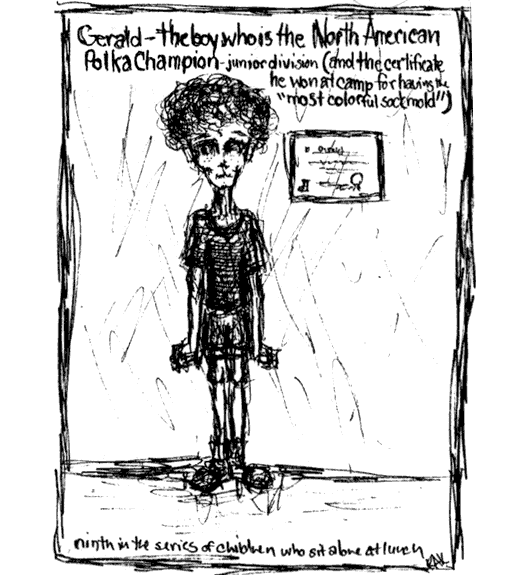 Gerald - the boy who is the North American
Polka Champion - junior division (and the certificate
he won at camp for having the
"most colorful sock mold")
ninth in the series of children who sit alone at lunch